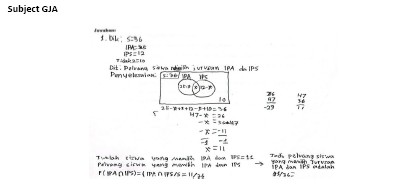 Subject GJA
Jawaban:
1. Dik: S=36
IPA=25
IPS=12
Tidak=10
Dit: Peluang siswa memilih jurusan IPA dan IPS
Penyelesaian:
S=36
IPA IPS
25-x x 12-x
10
25-x+x+12-x+10=36
47-x=36
-x=36-47
-x=-11
-1 -1
x=11
36
47
-11
47
36
11
Jumlah siswa yang memilih IPA dan IPS=11
Peluang siswa yang memilih IPA dan IPS
P(IPA∩IPS)=(IPA∩IPS/S=11/36
→ Jadi peluang siswa
yang memilih Jurusan
IPA dan IPS adalah
11/36